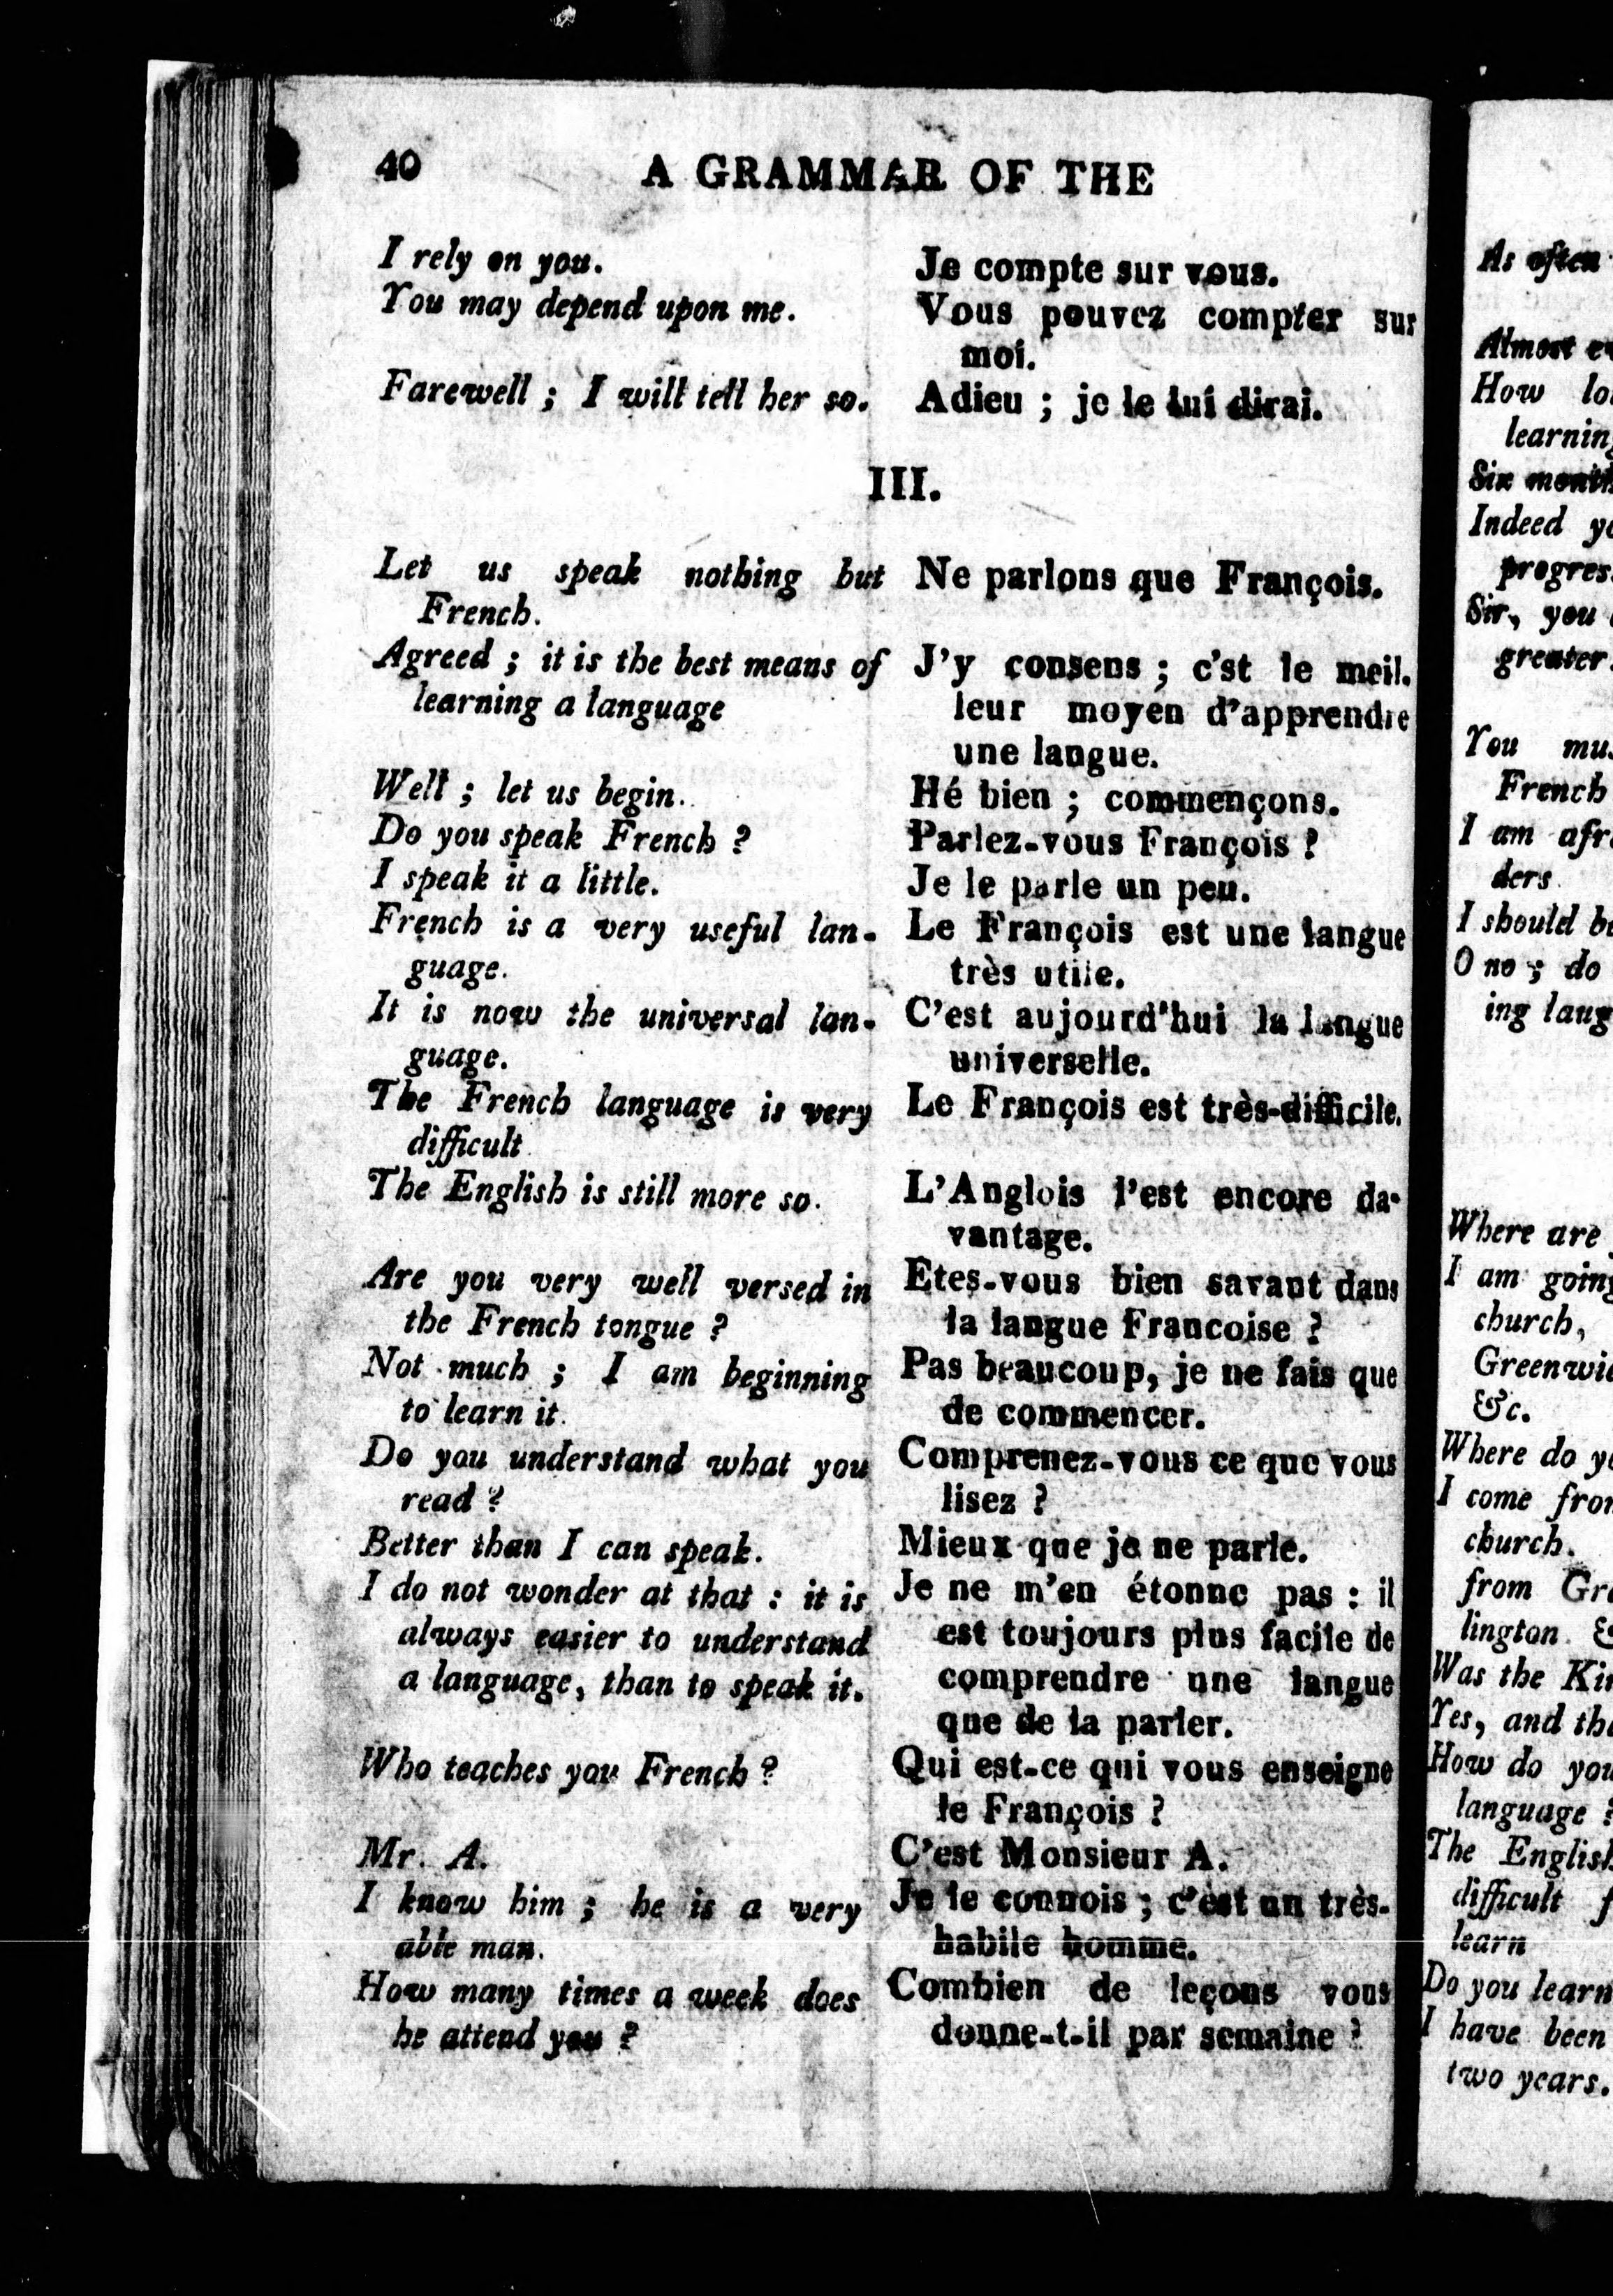 40
A GRAMMAR OF THE
I rely on you.
You may depend upon me.
Farewell ; I will tell her so.
Je compte sur vous.
Vous pouvez compter sur
moi.
Adieu ; je le lui dirai.
III.
Let us speak nothing but
French.
Agreed ; it is the best means of
learning a language
Well ; let us begin.
Do you speak French ?
I speak it a little.
French is a very useful lan-
guage.
It is now the universal lan-
guage.
The French language is very
difficult
The English is still more so.
Are you very well versed in
the French tongue ?
Not much ; I am beginning
to learn it.
Do you understand what you
read ?
Better than I can speak.
I do not wonder at that : it is
always easier to understand
a language, than to speak it.
Who teaches you French ?
Mr. A.
I know him ; he is a very
able man.
How many times a week does
he attend you ?
Ne parlons que François.
J'y consens ; c'st le meil-
leur moyen d'apprendre
une langue.
Hé bien ; commençons.
Parlez-vous François ?
Je le parle un peu.
Le François est une langue
très utile.
C'est aujourd'hui la langue
universelle.
Le François est très-difficile.
L'Anglois l'est encore da-
vantage.
Etes-vous bien savant dans
la langue Francoise ?
Pas beaucoup, je ne fais que
de commencer.
Comprenez-vous ce que vous
lisez ?
Mieux que je ne parle.
Je ne m'en étonne pas : il
est toujours plus facile de
comprendre une langue
que de la parler.
Qui est-ce qui vous enseigne
le François ?
C'est Monsieur A.
Je le connois ; c'est un très-
habile homme.
Combien de leçons vous
donne-t-il par semaine ?
As often
Almost
How
learning
Six
Indeed
Sir, you
greater
You
French
I am
ders
I should
O no ; do
ing
Where are
I am going
church,
&c.
Where do
I come
church.
from
lington
Was the
Yes, and
How do you
language ?
The English
difficult
learn
Do you learn
I have been
two years.